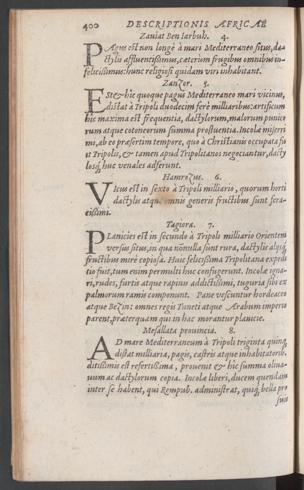 400 DESCRIPTIONIS AFRICAE
Zaniat Ben Iarbuh. 4.
PAgus est non longè à mari Mediterraneo situs, da-
ctylis affluentissimus, cæterum frugibus omnibus in-
felicissimus: hunc religiosi quidam viri inhabitant.
Zanzor. 5.
ESt & hic quoque pagus Mediterraneo mari vicinus,
distat à Tripoli duodecim ferè milliaribus: artificum
hic maxima est frequentia, dactylorum, malorum punico
rum atque cotoneorum summa profluentia. Incolæ miserri
mi, ab eo præsertim tempore, quo à Christianis occupata fu
it Tripolis, & tamen apud Tripolitanos negociantur, dacty
losq́ huc venales adferunt.
Hamrozus. 6.
VIcus est in sexto à Tripoli milliario, quorum horti
dactylis atque omnis generis fructibus sunt fera-
cissimi.
Tagiora. 7.
PLanicies est in secundo à Tripoli milliario Orientem
versus situs, in qua nõnulla sunt rura, dactylis aliisq́
fructibus mirè copiosa. Huic felicissima Tripolitana expedi
tio fuit, tum enim permulti huc confugerunt. Incolæ igna-
ri, rudes, furtis atque rapinis addictissimi, tuguria sibi ex
palmorum ramis componunt. Pane vescuntur hordeaceo
atque Bezin: omnes regis Tuneti atque Arabum imperio
parent, præterquam qui in hac morantur planicie.
Mesallata prouincia. 8.
AD mare Mediterraneum à Tripoli triginta quinq́
distat milliaria, pagis, castris atque inhabitatorib.
ditissimis est refertissima, prouenit & hic summa oliua-
rum ac dactylorum copia. Incolæ liberi, ducem quendam
inter se habent, qui Rempub. administrat, quiq́ bella pro
suo